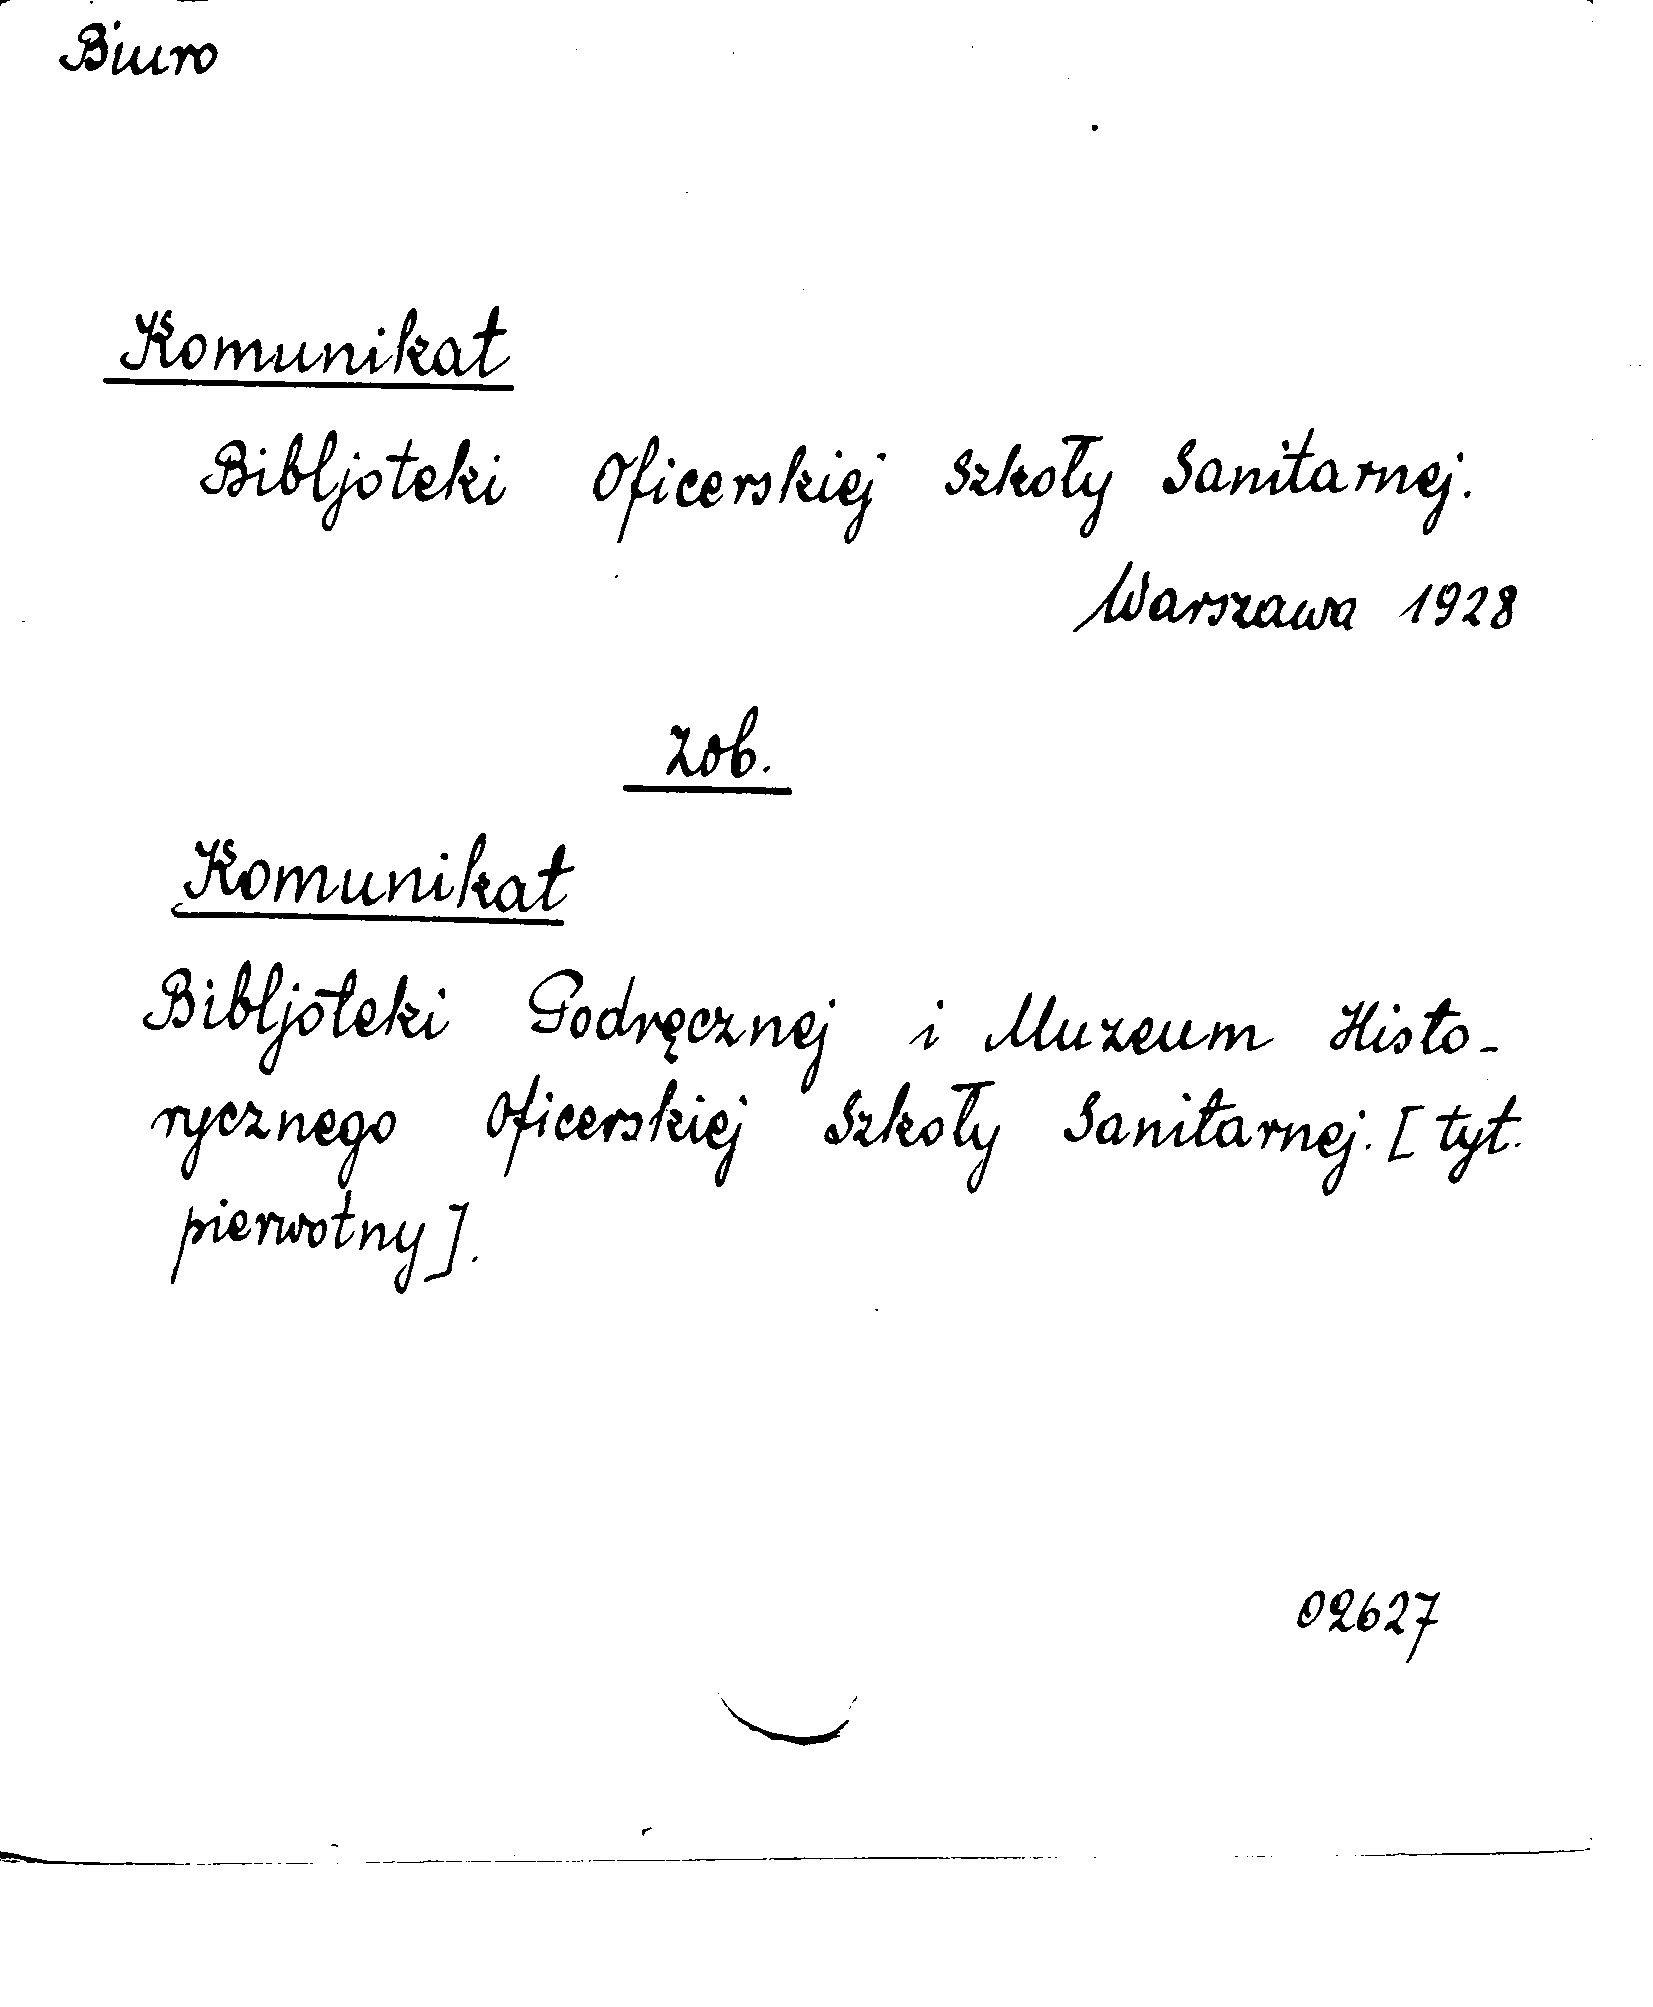 Biuro
Komunikat
Bibljoteki Oficerskiej Szkoły Sanitarnej.
Warszawa 1928
Zob.
Komunikat
Bibljoteki Podręcznej i Muzeum Histo-
rycznego Oficerskiej Szkoły Sanitarnej. [tyt.
pierwotny].
02627